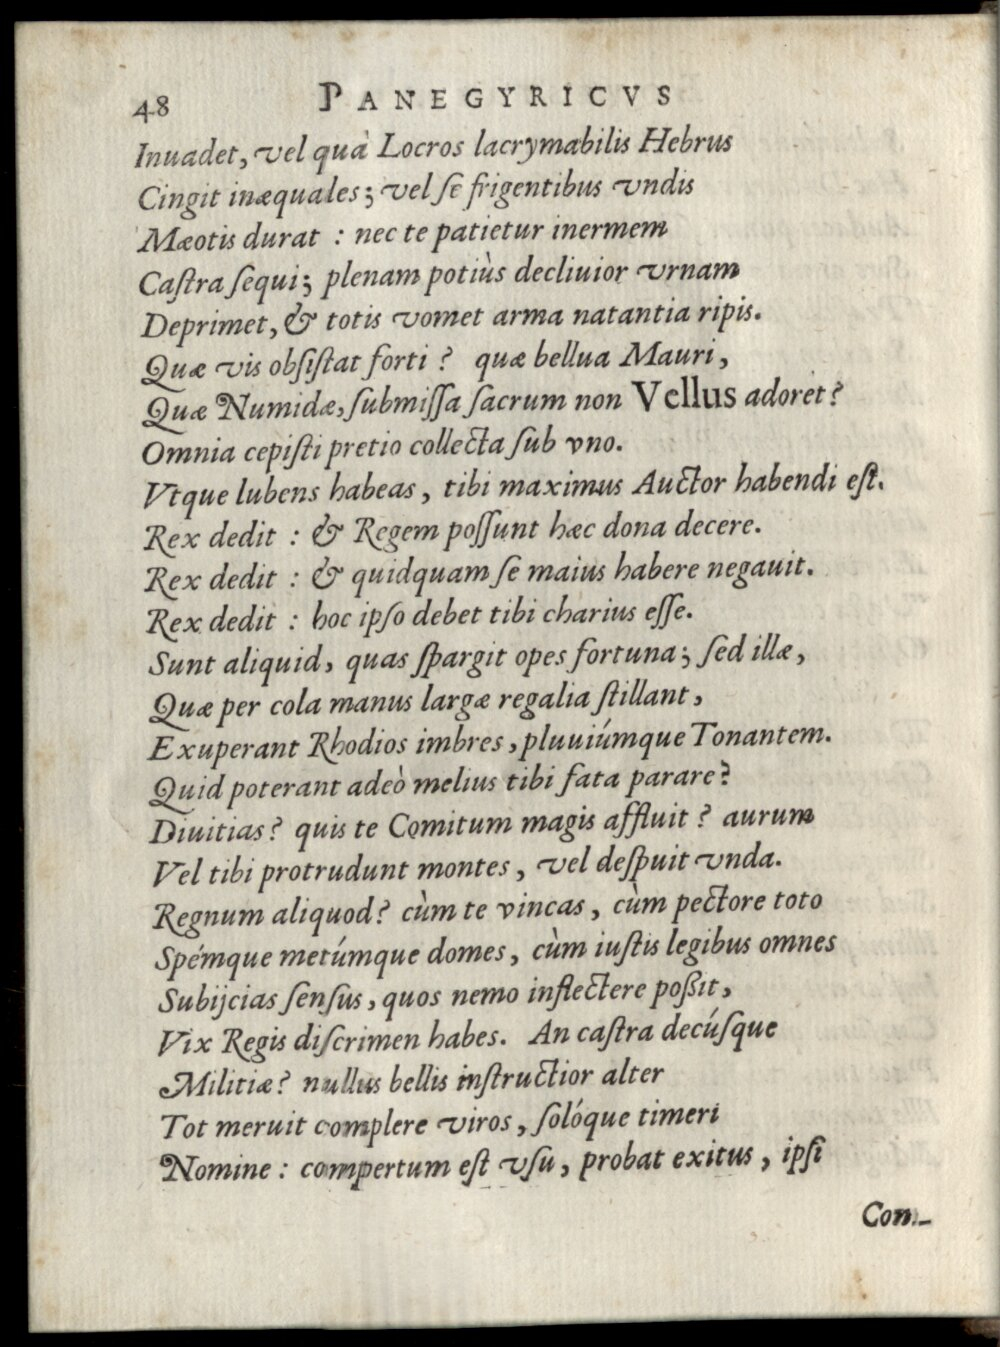 48 PANEGYRICVS
Inuadet, vel quà Locros lacrymabilis Hebrus
Cingit inæquales; vel ſe frigentibus vndis
Mæotis durat : nec te patietur inermem
Caſtra ſequi; plenam potiùs decliuior vrnam
Deprimet, & totis vomet arma natantia ripis.
Quæ vis obſiſtat forti ? quæ bellua Mauri,
Quæ Numidæ, ſubmiſſa ſacrum non Vellus adoret?
Omnia cepiſti pretio collecta ſub vno.
Vtque lubens habeas, tibi maximus Auctor habendi eſt.
Rex dedit : & Regem poſſunt hæc dona decere.
Rex dedit : & quidquam ſe maius habere negauit.
Rex dedit : hoc ipſo debet tibi charius eſſe.
Sunt aliquid, quas ſpargit opes fortuna; ſed illæ,
Quæ per cola manus largæ regalia ſtillant,
Exuperant Rhodios imbres, pluuiúmque Tonantem.
Quid poterant adeò melius tibi fata parare?
Diuitias? quis te Comitum magis affluit ? aurum
Vel tibi protrudunt montes, vel deſpuit vnda.
Regnum aliquod? cùm te vincas, cùm pectore toto
Spémque metúmque domes, cùm iuſtis legibus omnes
Subijcias ſenſus, quos nemo inflectere poßit,
Vix Regis diſcrimen habes. An caſtra decúſque
Militiæ? nullus bellis inſtructior alter
Tot meruit complere viros, ſolóque timeri
Nomine : compertum eſt vſu, probat exitus, ipſi
Con-